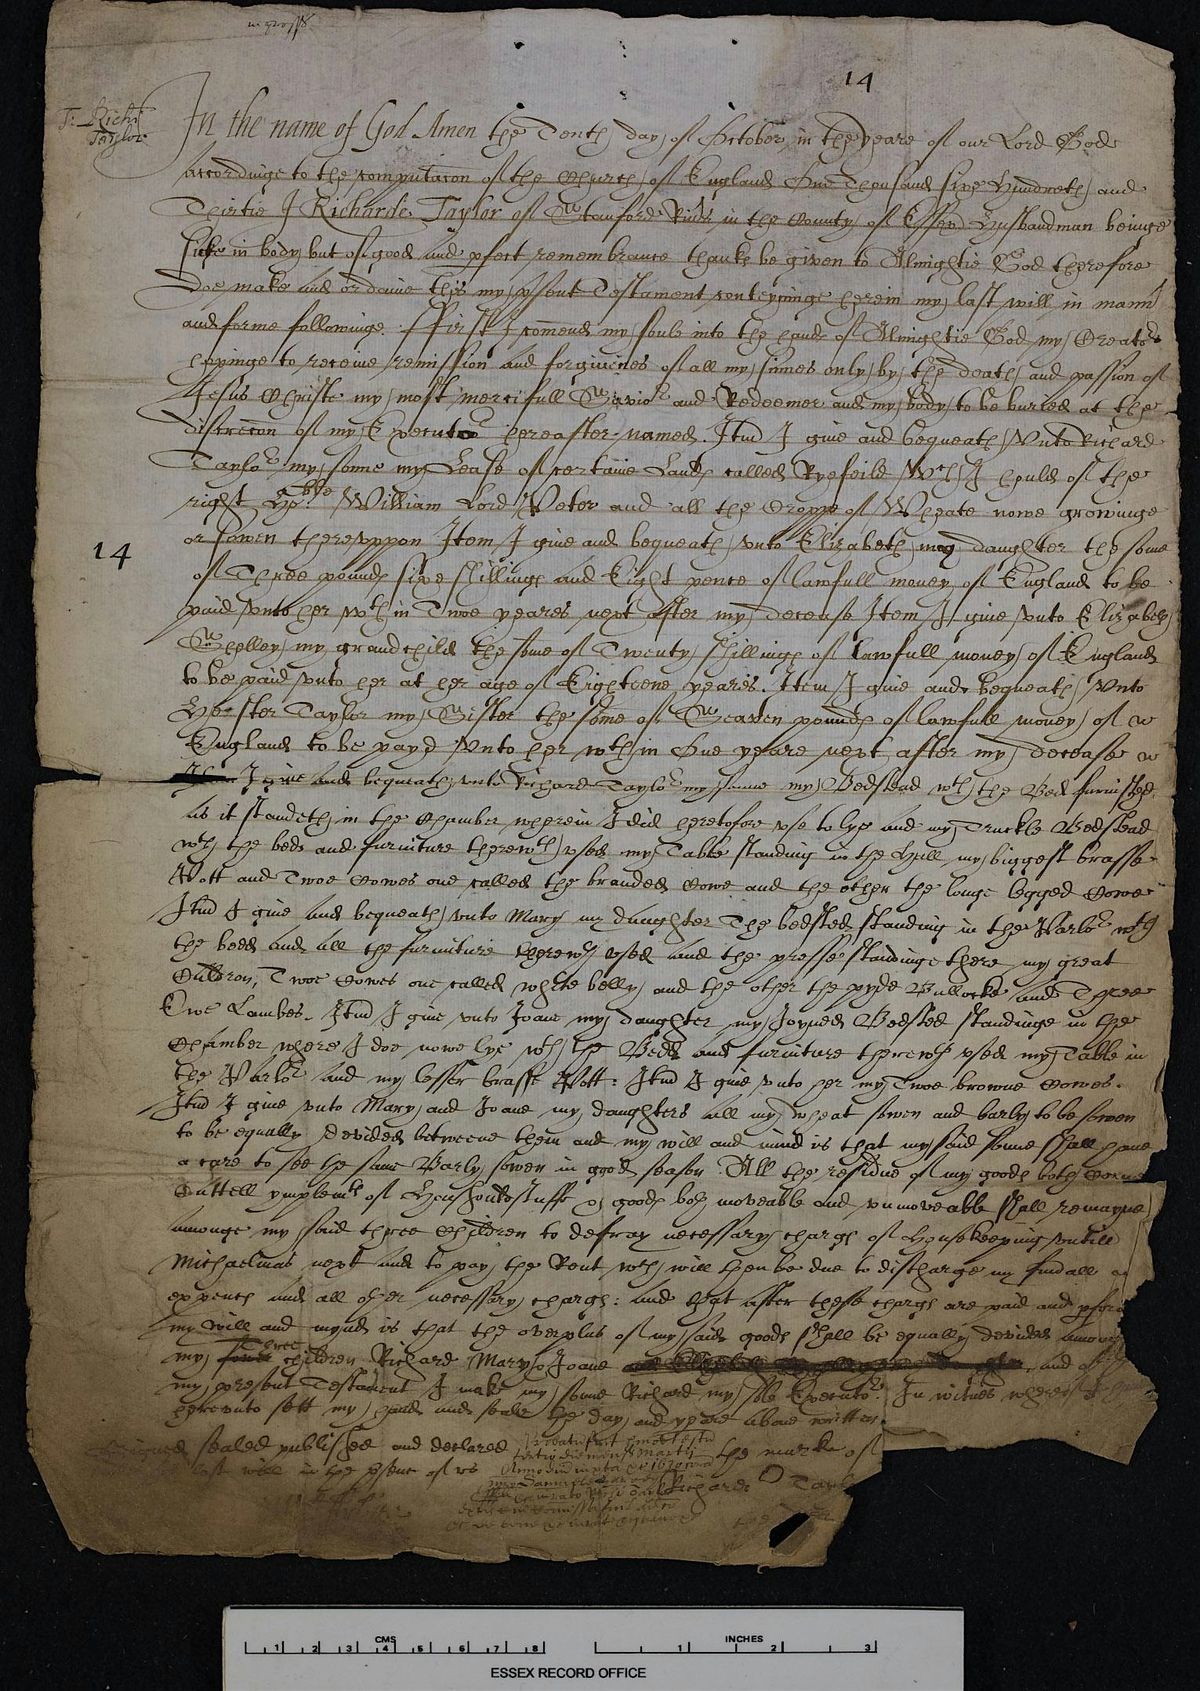 ingross
14
T: Richi
Taylor
In the name of God Amen the Tenth day of October in the yeare of our Lord God
accordinge to the computacon of the Church of England One Thousand sixe Hundreth and
Thirtie I Richarde Taylor of Stanford Rivs in the County of Essex Husbandman beinge
sicke in body but of good and pfect remembrance thanks be given to Almightie God therefore
doe make and ordaine this my psent Testament conteyninge herein my last will in mann
and forme followinge: ffirst I comend my soule into the hands of Almightie God my Creator
hopinge to receive remission and forgivenes of all my sinnes only by the death and passion of
Jesus Christe my most mercifull Savior and Redeemer and my body to be buried at the
discrecon of my Executor hereafter named. Itm I give and bequeath unto Richard
Taylor my sonne my Lease of certaine Lands called Ryefeild wch I hould of the
right Hoble William Lord Peter and all the Croppe of Wheate nowe growinge
14
or sowen thereuppon Item I give and bequeath unto Elizabeth my daughter the some
of Three pounds sixe shillings and Eight pence of lawfull money of England to be
paid unto her wthin Twoe yeares next after my decease Item I give unto Elizabeth
Shelley my grandchild the some of Twenty shillings of lawfull money of England
to be paid unto her at her age of Eighteene yeares. Item I give and bequeath unto
Hester Taylor my Sister the some of Seaven pounds of lawfull money of
England to be payd unto her wthin One yeare next after my decease
Itm I give and bequeath unto Richard Taylor my sonne my Bedstead wth the Bed furnished
as it standeth in the Chamber wherein I did heretofore use to lye and my Truckle Bedstead
wth the bedd and furniture therewth used my Table standing in the Hall my biggest brasse
Pott and Twoe Cowes one called the branded Cowe and the other the longe legged Cowe
Itm I give and bequeath unto Mary my daughter The bedsted standing in the Parlor wth
the bedd and all the furniture therewth used and the presse standinge there my great
Culdron, Twoe Cowes one called white belly and the other the pyde Bullocke and Three
Ewe Lambes. Itm I give unto Joane my daughter my Joyned Bedsted standinge in the
Chamber where I doe nowe lye wth the Bedd and furniture therewth used my Table in
the Parlor and my lesser brasse Pott: Itm I give unto her my Twoe browne Cowes.
Itm I give unto Mary and Joane my daughters all my wheat sowen and barly to be sowen
to be equally devided betweene them and my will and mind is that my said sonne shall have
a care to see the same Barly sowen in good season. All the residue of my goods both Corne
Cattell ymplemts of Houshouldstuffe & goods both moveable and unmoveable shall remayne
amonge my said three Children to defray necessary chargs of Housekeeping untill
Michaelmas next and to pay the Rent wch will then be due to discharge my funerall
expencs and all other necessary chargs: and that after these chargs are paid and pfor
my will and mynd is that the overplus of my said goods shall be equally devided among
my three children Richard Mary & Joane and of
my present Testament I make my sonne Richard my sole Executor. In witnes whereof I
hereunto sett my hand and seale the day and yeare above written.
sealed published and declared
last will in the psence of us
the marke of
Richard Tayl
CMS
1 2 3 4 5 6 7 8
INCHES
1 2 3
ESSEX RECORD OFFICE